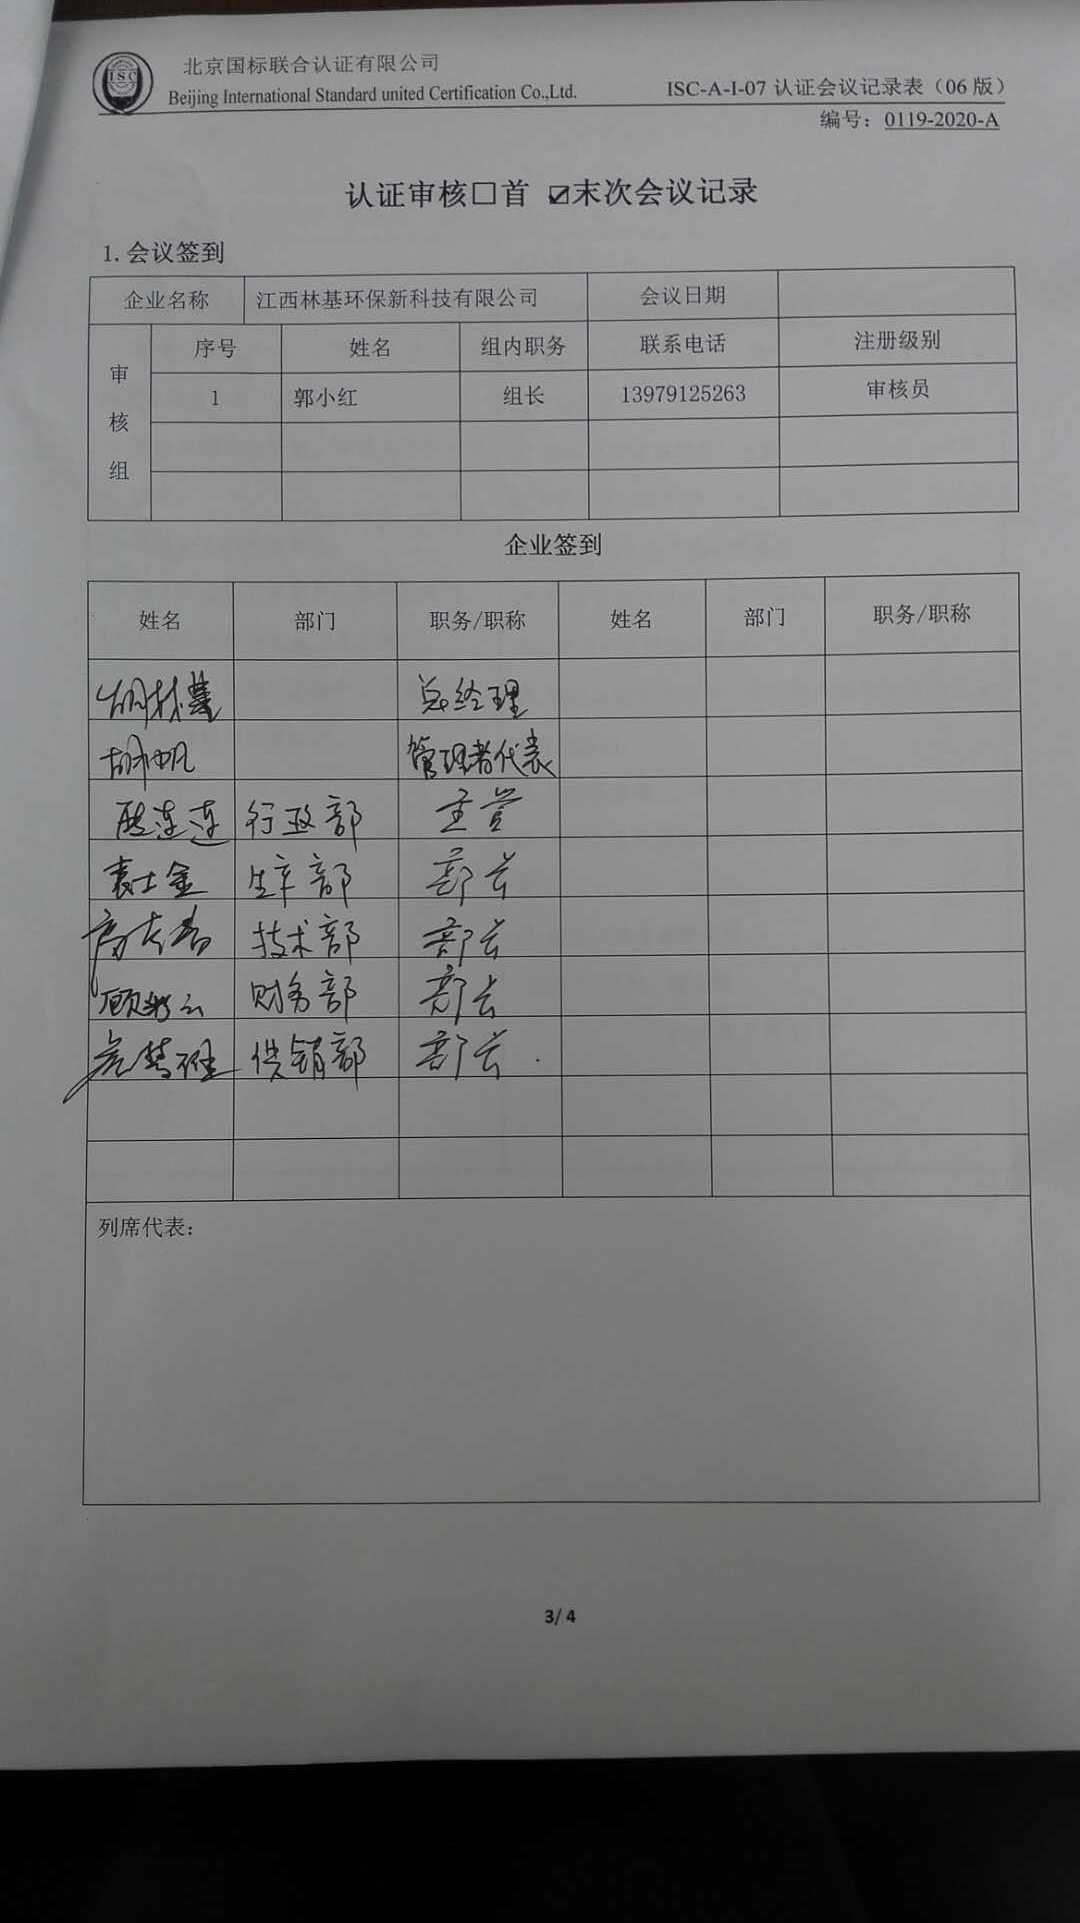 ISC
北京国标联合认证有限公司
Beijing International Standard united Certification Co.,Ltd.
ISC-A-I-07 认证会议记录表（06 版）
编号：0119-2020-A
认证审核□首 ☑末次会议记录
1.会议签到
企业名称 江西林基环保新科技有限公司 会议日期
审核组 序号 姓名 组内职务 联系电话 注册级别
1 郭小红 组长 13979125263 审核员
企业签到
姓名 部门 职务/职称 姓名 部门 职务/职称
总经理
管理者代表
行政部 主管
袁士金 生产部 部长
技术部 部长
财务部 部长
供销部 部长
列席代表：
3/ 4